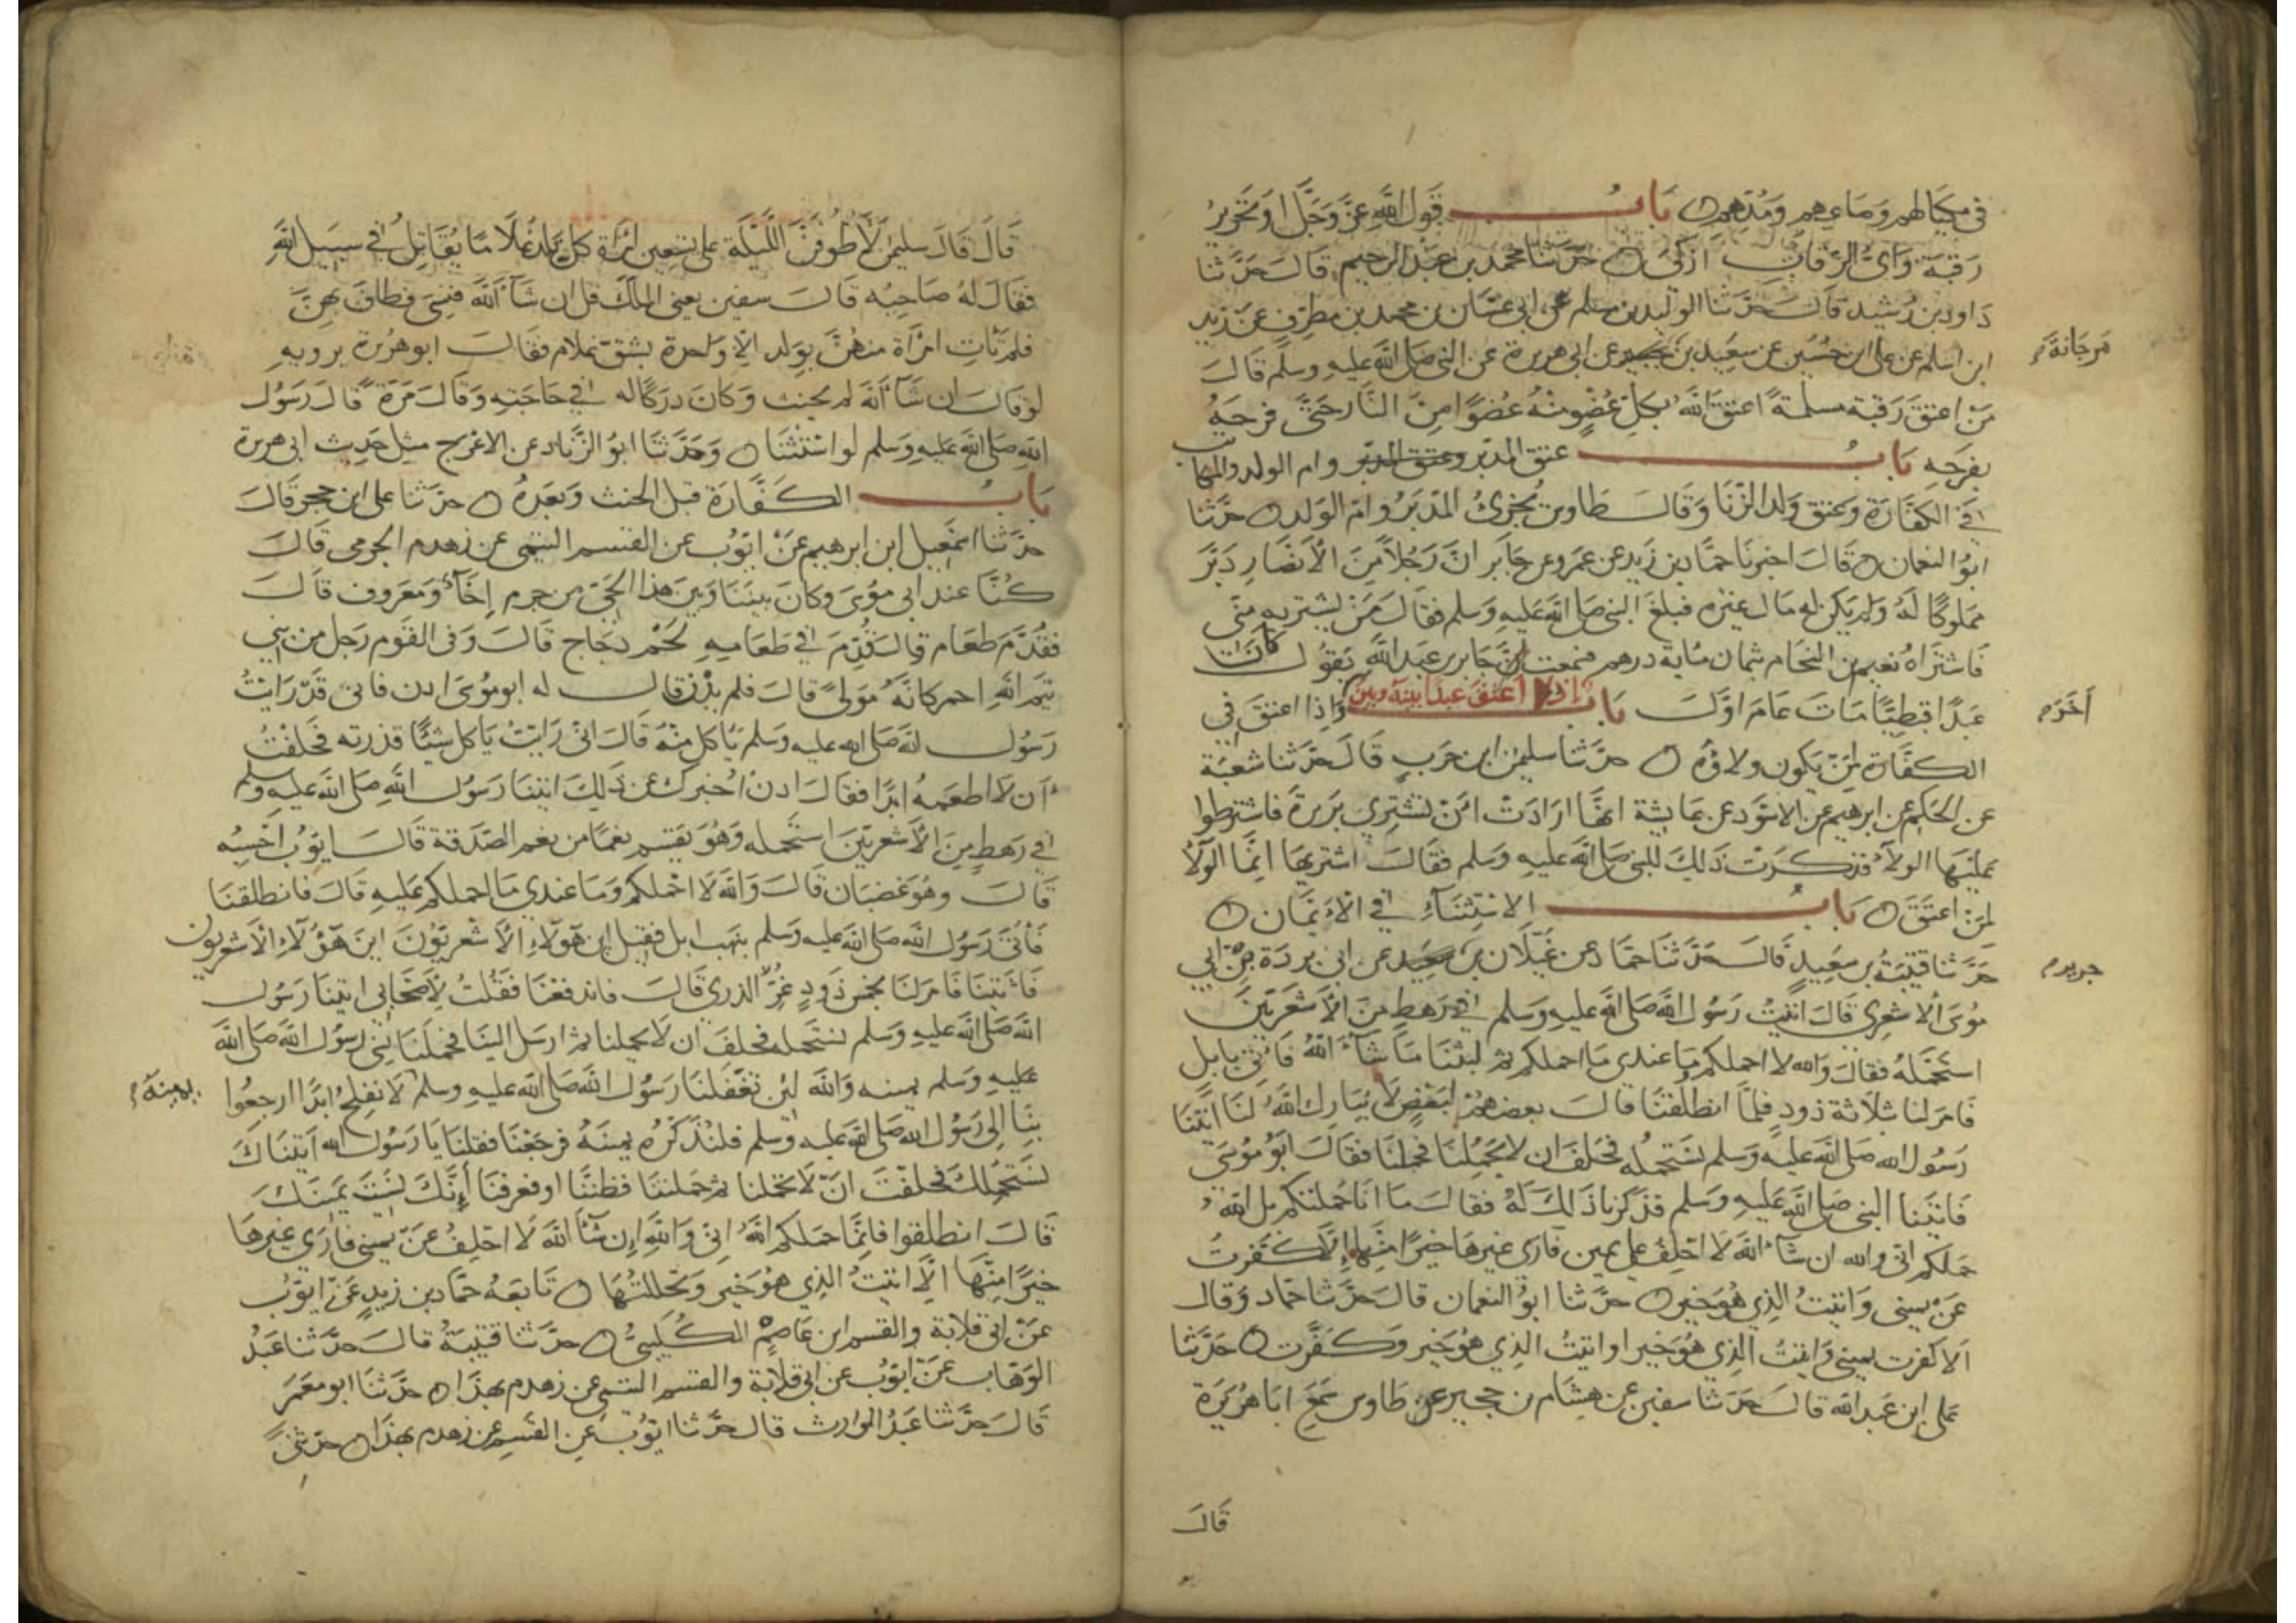 في مكيالهم وصاعهم ومدهم باب قول الله عز وجل او تحرير
رقبة واى الرقاب ازكى حدثنا محمد بن عبد الرحيم قال حدثنا
داود بن رشيد قال حدثنا الوليد بن مسلم عن ابى غسان بن محمد بن مطرف عن زيد
ابن اسلم عن على ابن حسين عن سعيد بن عن ابى هريرة عن النبى صلى الله عليه وسلم قال
مرجانة
من اعتق رقبة مسلمة اعتق الله بكل عضو منه عضوا من النار حتى فرجه
بفرجه باب عتق المدبر وعتق المدبر وام الولد والمكاتب
في الكفارة وعتق ولد الزنا وقال طاوس يجزئ المدبر وام الولد حدثنا
ابو النعمان قال اخبرنا حماد بن زيد عن عمرو عن جابر ان رجلا من الانصار دبر
مملوكا له ولم يكن له مال غيره فبلغ النبى صلى الله عليه وسلم فقال من يشتريه منى
فاشتراه نعيم بن النحام بثمان ماية درهم فسمعت جابر بن عبد الله يقول كان
عبدا قبطيا مات عام اول باب اذا اعتق عبدا بينه وبين واذا اعتق في
آخر
الكفارة لمن يكون ولاؤه حدثنا سليمن ابن حرب قال حدثنا شعبة
عن الحكم عن ابرهيم عن الاسود عن عايشة انها ارادت ان تشترى بريرة فاشترطوا
عليها الولاء فذكرت ذلك للنبى صلى الله عليه وسلم فقال اشتريها انما الولاء
لمن اعتق باب الاستثناء في الايمان
حدثنا قتيبة بن سعيد قال حدثنا حماد عن غيلان بن عن ابى بردة عن ابى
جرير
موسى الاشعرى قال اتيت رسول الله صلى الله عليه وسلم في رهط من الاشعريين
استحمله فقال والله لا احملكم وما عندى ما احملكم ثم لبثنا ما شاء الله فاتى بابل
فامر لنا بثلاثة ذود فلما انطلقنا قال بعضهم لبعض لا يبارك الله لنا اتينا
رسول الله صلى الله عليه وسلم نستحمله فحلف ان لا يحملنا فحملنا فقال ابو موسى
فاتينا النبى صلى الله عليه وسلم فذكرنا ذلك له فقال ما انا حملتكم بل الله
حملكم انى والله ان شاء الله لا احلف على يمين فارى غيرها خيرا منها الا كفرت
عن يمينى واتيت الذى هو خير حدثنا ابو النعمان قال حدثنا حماد وقال
الا كفرت يمينى واتيت الذى هو خير او اتيت الذى هو خير وكفرت حدثنا
على ابن عبد الله قال حدثنا سفين عن هشام بن حجير عن طاوس سمع ابا هريرة
قال
قال قال سليمن لاطوفن الليلة على تسعين امراة كل يلد غلاما يقاتل في سبيل الله
فقال له صاحبه قال سفين يعنى الملك قل ان شاء الله فنسى فطاف بهن
فلم تات امراة منهن بولد الا واحدة بشق غلام فقال ابو هريرة يرويه
لو قال ان شاء الله لم يحنث وكان دركا له في حاجته وقال مرة قال رسول
الله صلى الله عليه وسلم لو استثنا وحدثنا ابو الزناد عن الاعرج مثل حديث ابى هريرة
باب الكفارة قبل الحنث وبعده حدثنا على ابن حجر قال
حدثنا اسمعيل ابن ابرهيم عن ايوب عن القسم التيمى عن زهدم الجرمى قال
كنا عند ابى موسى وكان بيننا وبين هذا الحى من جرم اخاء ومعروف قال
فقدم طعام قال وقدم في طعامه لحم دجاج قال وفى القوم رجل من بنى
تيم الله احمر كانه مولى قال فلم يدن قال له ابو موسى ادن فانى قد رايت
رسول الله صلى الله عليه وسلم ياكل منه قال انى رايت ياكل شيئا قذرته فحلفت
ان لا اطعمه ابدا فقال ادن اخبرك عن ذلك اتينا رسول الله صلى الله عليه وسلم
في رهط من الاشعريين استحمله وهو يقسم نعما من نعم الصدقة قال ايوب احسبه
قال وهو غضبان قال والله لا احملكم وما عندى ما احملكم عليه قال فانطلقنا
فاتى رسول الله صلى الله عليه وسلم بنهب ابل فقيل اين هولاء الاشعريون اين هؤلاء الاشعريون
فاتينا فامر لنا بخمس ذود غر الذرى قال فاندفعنا فقلت لاصحابى اتينا رسول
الله صلى الله عليه وسلم نستحمله فحلف ان لا يحملنا ثم ارسل الينا فحملنا نسى رسول الله صلى الله
عليه وسلم يمينه والله لئن تغفلنا رسول الله صلى الله عليه وسلم لا نفلح ابدا ارجعوا
يمينه
بنا الى رسول الله صلى الله عليه وسلم فلنذكره يمينه فرجعنا فقلنا يا رسول الله اتيناك
نستحملك فحلفت ان لا تحملنا ثم حملتنا فظننا او فعرفنا انك نسيت يمينك
قال انطلقوا فانما حملكم الله انى والله ان شاء الله لا احلف عن يمينى فارى غيرها
خيرا منها الا اتيت الذى هو خير وتحللتها تابعه حماد بن زيد عن ايوب
عن ابى قلابة والقسم ابن عاصم الكليبى حدثنا قتيبة قال حدثنا عبد
الوهاب عن ايوب عن ابى قلابة والقسم التيمى عن زهدم بهذا حدثنا ابو معمر
قال حدثنا عبد الوارث قال حدثنا ايوب عن القسم عن زهدم بهذا حدثنى